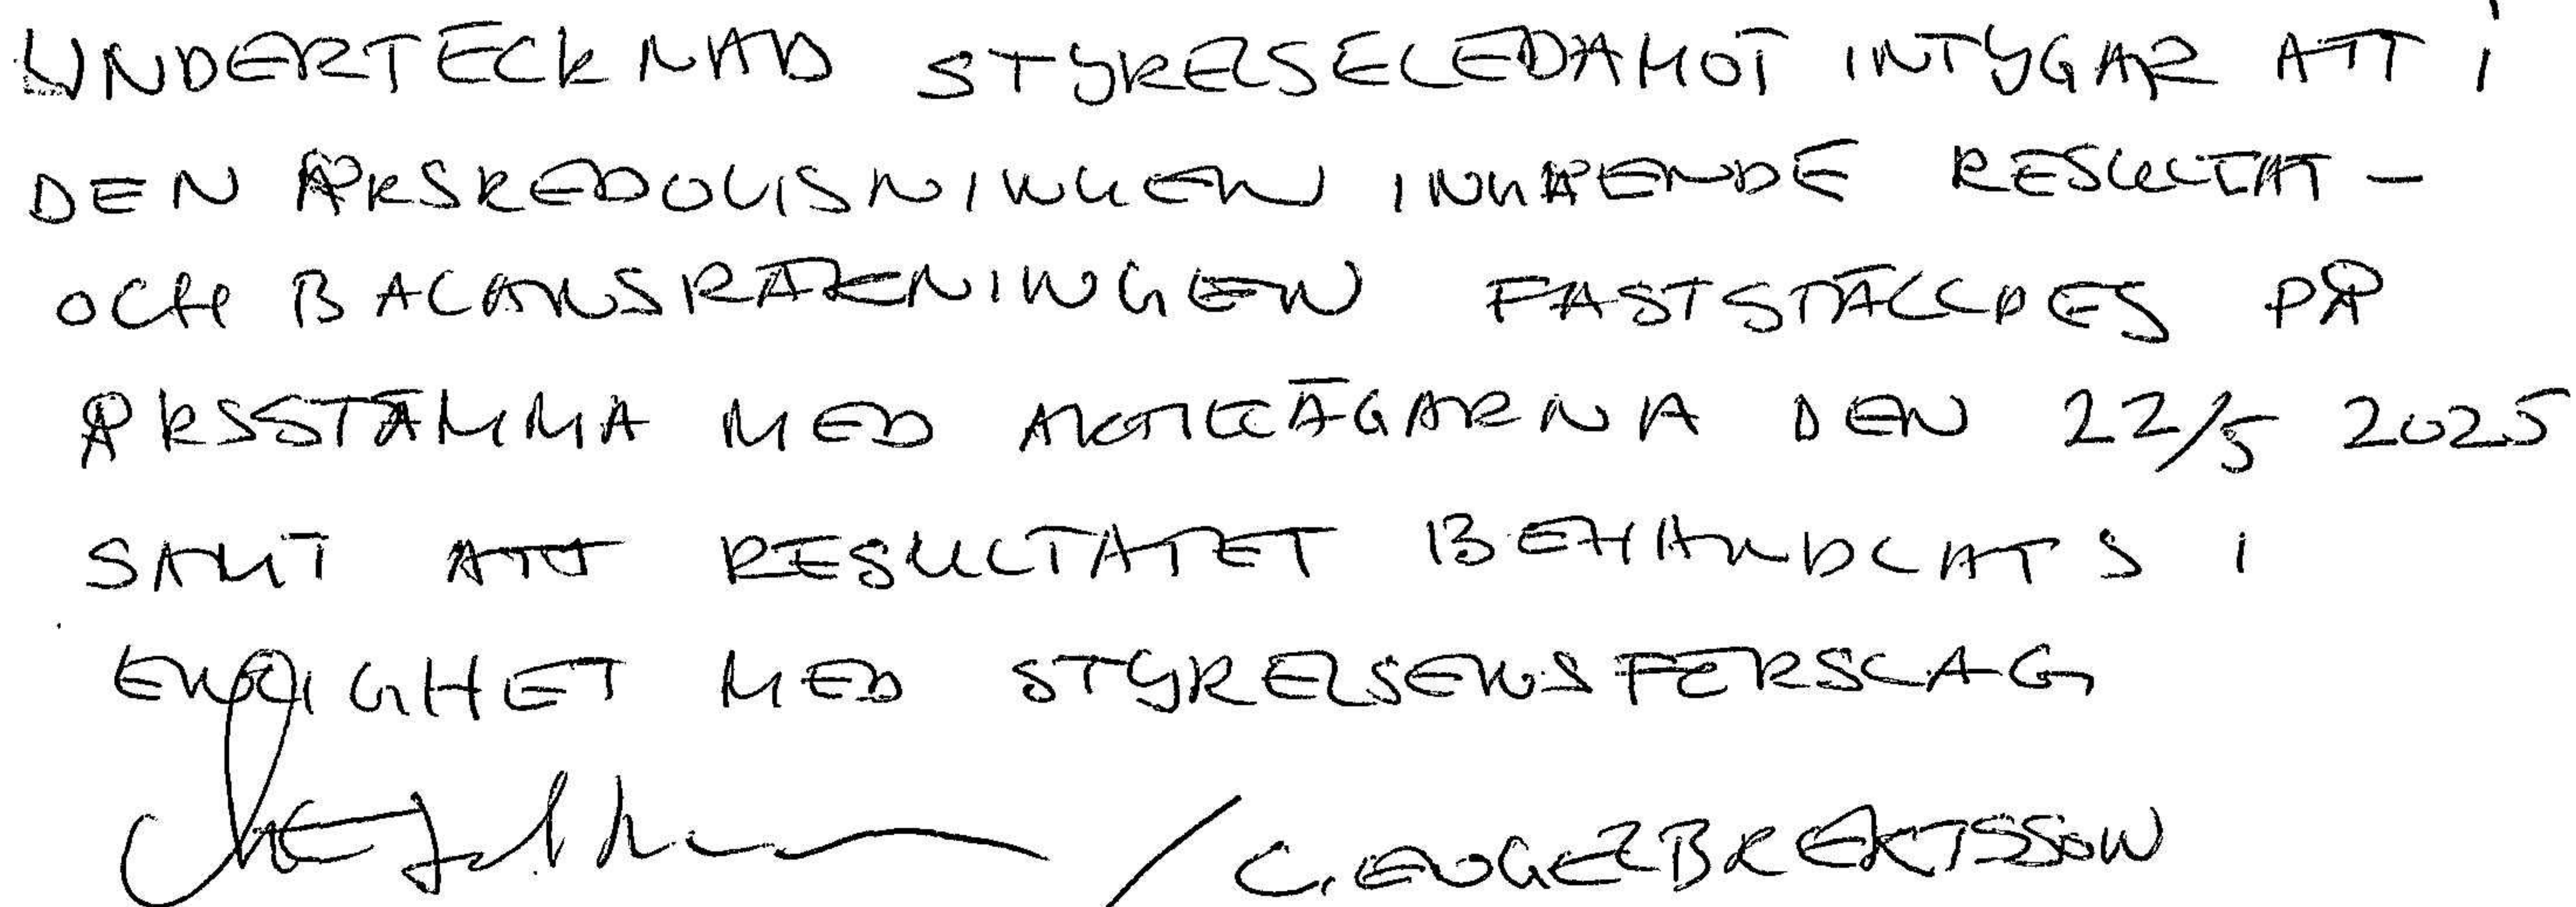 UNDERTECKNAD STYRELSELEDAMOT INTYGAR ATT I
DEN ÅRSREDOVISNINGEN INGÅENDE RESULTAT-
OCH BALANSRÄKNINGEN FASTSTÄLLDES PÅ
ÅRSSTÄMMA MED AKTIEÄGARNA DEN 22/5 2025
SAMT ATT RESULTATET BEHANDLATS I
ENLIGHET MED STYRELSENS FÖRSLAG
/ C. ENGELBREKTSSON